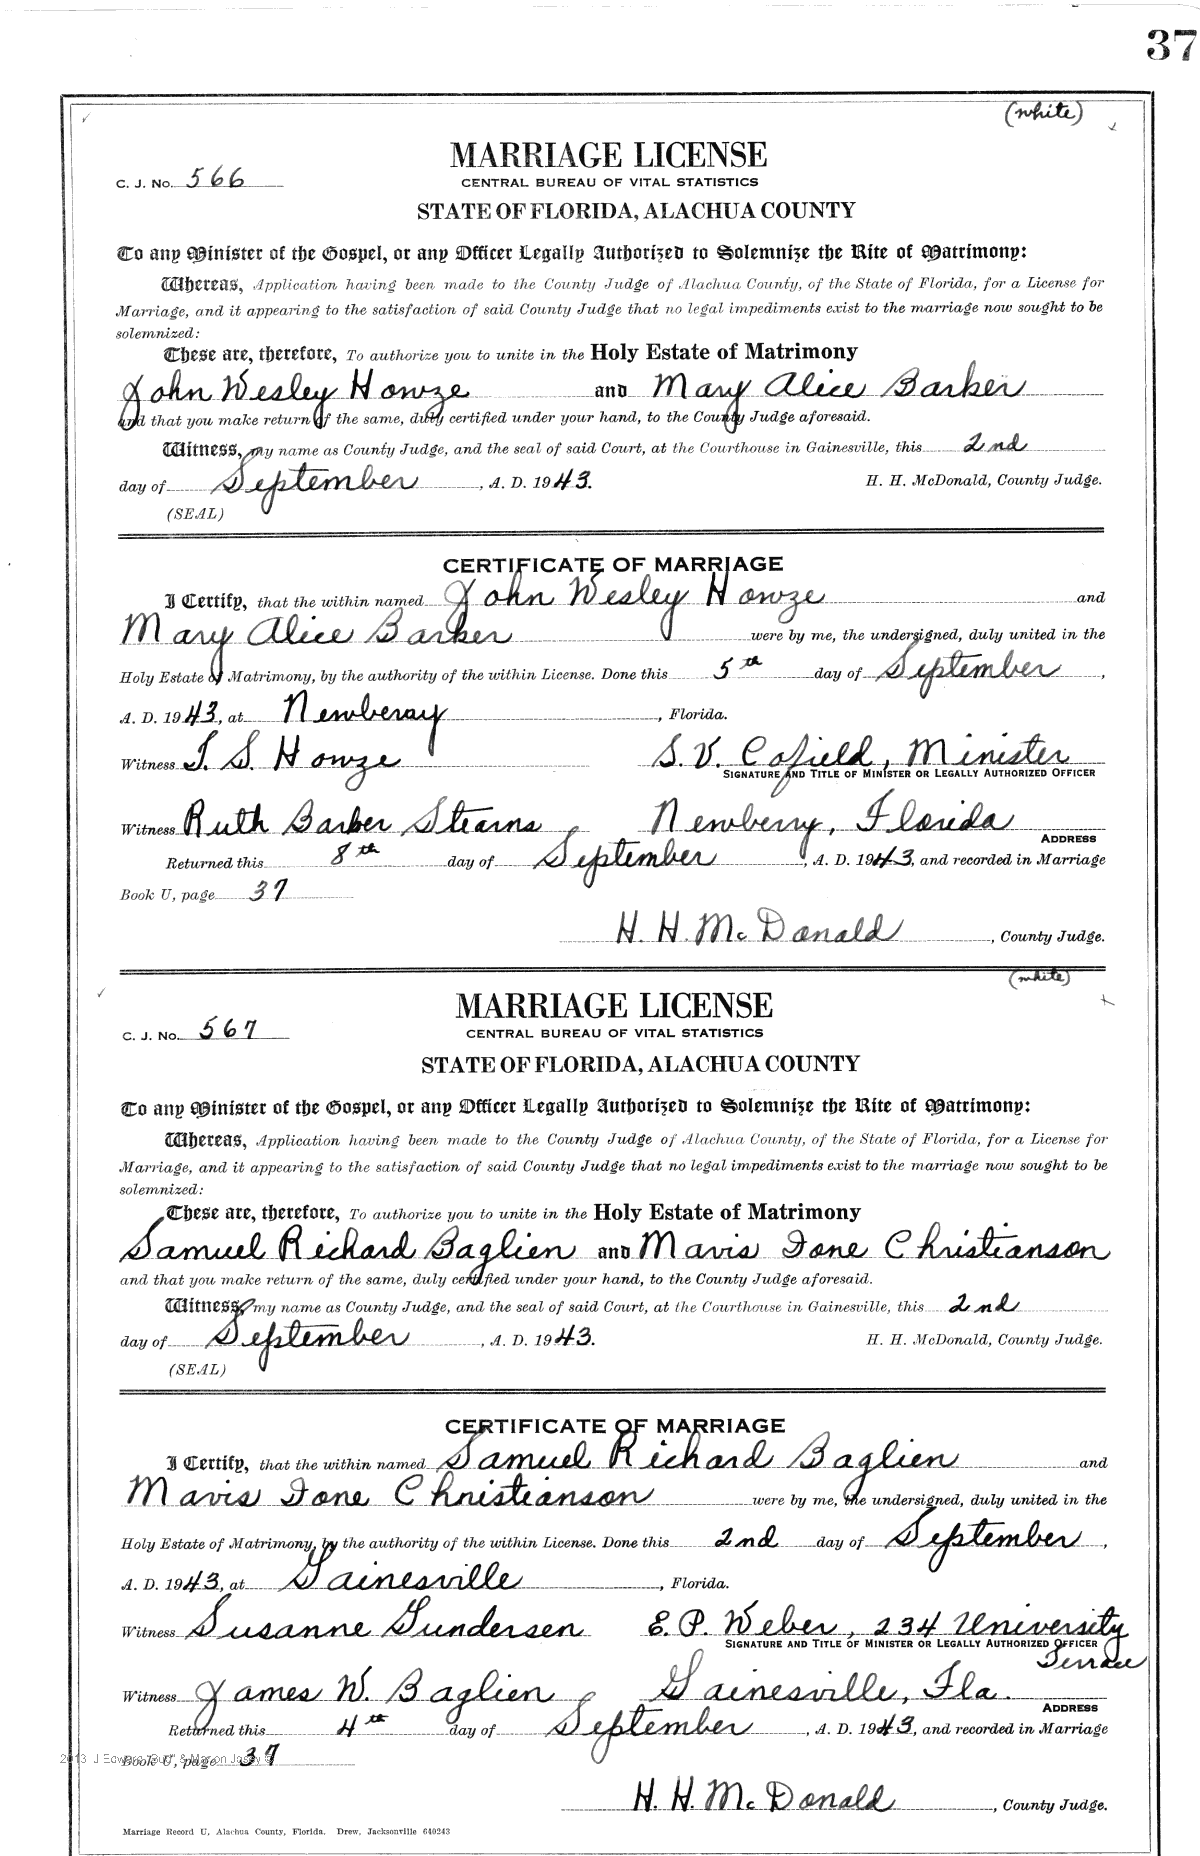 37
(white)
MARRIAGE LICENSE
C. J. No. 566
CENTRAL BUREAU OF VITAL STATISTICS
STATE OF FLORIDA, ALACHUA COUNTY
To any Minister of the Gospel, or any Officer Legally Authorized to Solemnize the Rite of Matrimony:
Whereas, Application having been made to the County Judge of Alachua County, of the State of Florida, for a License for
Marriage, and it appearing to the satisfaction of said County Judge that no legal impediments exist to the marriage now sought to be
solemnized:
These are, therefore, To authorize you to unite in the Holy Estate of Matrimony
John Wesley Howze and Mary Alice Barker
and that you make return of the same, duly certified under your hand, to the County Judge aforesaid.
Witness, my name as County Judge, and the seal of said Court, at the Courthouse in Gainesville, this 2nd
day of September, A. D. 1943. H. H. McDonald, County Judge.
(SEAL)
CERTIFICATE OF MARRIAGE
I Certify, that the within named John Wesley Howze and
Mary Alice Barker were by me, the undersigned, duly united in the
Holy Estate of Matrimony, by the authority of the within License. Done this 5th day of September,
A. D. 1943, at Newberry, Florida.
Witness T. S. Howze S. V. Cofield, Minister
SIGNATURE AND TITLE OF MINISTER OR LEGALLY AUTHORIZED OFFICER
Witness Ruth Barker Stearns Newberry, Florida
ADDRESS
Returned this 8th day of September, A. D. 1943, and recorded in Marriage
Book U, page 37
H. H. McDonald, County Judge.
(white)
MARRIAGE LICENSE
C. J. No. 567
CENTRAL BUREAU OF VITAL STATISTICS
STATE OF FLORIDA, ALACHUA COUNTY
To any Minister of the Gospel, or any Officer Legally Authorized to Solemnize the Rite of Matrimony:
Whereas, Application having been made to the County Judge of Alachua County, of the State of Florida, for a License for
Marriage, and it appearing to the satisfaction of said County Judge that no legal impediments exist to the marriage now sought to be
solemnized:
These are, therefore, To authorize you to unite in the Holy Estate of Matrimony
Samuel Richard Baglien and Mavis Ione Christianson
and that you make return of the same, duly certified under your hand, to the County Judge aforesaid.
Witness, my name as County Judge, and the seal of said Court, at the Courthouse in Gainesville, this 2nd
day of September, A. D. 1943. H. H. McDonald, County Judge.
(SEAL)
CERTIFICATE OF MARRIAGE
I Certify, that the within named Samuel Richard Baglien and
Mavis Ione Christianson were by me, the undersigned, duly united in the
Holy Estate of Matrimony, by the authority of the within License. Done this 2nd day of September,
A. D. 1943, at Gainesville, Florida.
Witness Susanne Gundersen E. P. Weber, 234 University
SIGNATURE AND TITLE OF MINISTER OR LEGALLY AUTHORIZED OFFICER
Terrace
Witness James W. Baglien Gainesville, Fla.
ADDRESS
Returned this 4th day of September, A. D. 1943, and recorded in Marriage
Book U, page 37
2013 J Edward
H. H. McDonald, County Judge.
Marriage Record U, Alachua County, Florida. Drew, Jacksonville 640243